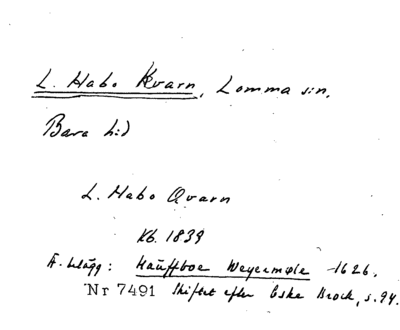 L. Habo Kvarn, Lomma sn,
Bara hd
L. Habo Qvarn
Kb. 1839
Ä. belägg: Hauffboe Weyermøle 1626.
Nr 7491 Skiftet efter Eske Brock, s. 94.